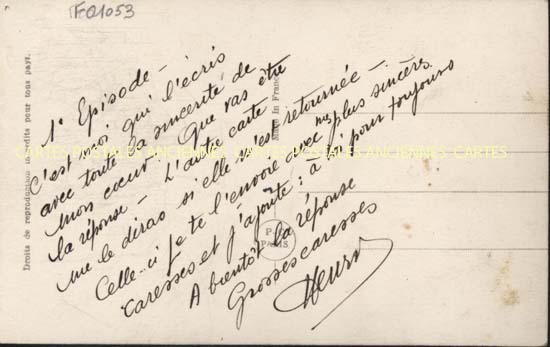 FQ1053
1e Episode -
C'est moi qui l'écris
avec toute la sincerité de
mon cœur. Que vas être
la réponse - L'autre carte
me le diras si elle s'est retournée -
Celle-ci je te l'envoie avec mes plus sincères
caresses et j'ajoute : à toi pour toujours
A bientôt la réponse
Grosses caresses
Henry
Droits de reproduction interdits pour tous pays.
Made in France
PARIS
CARTES POSTALES ANCIENNES CARTES POSTALES ANCIENNES CARTES POSTALES ANCIENNES CARTES